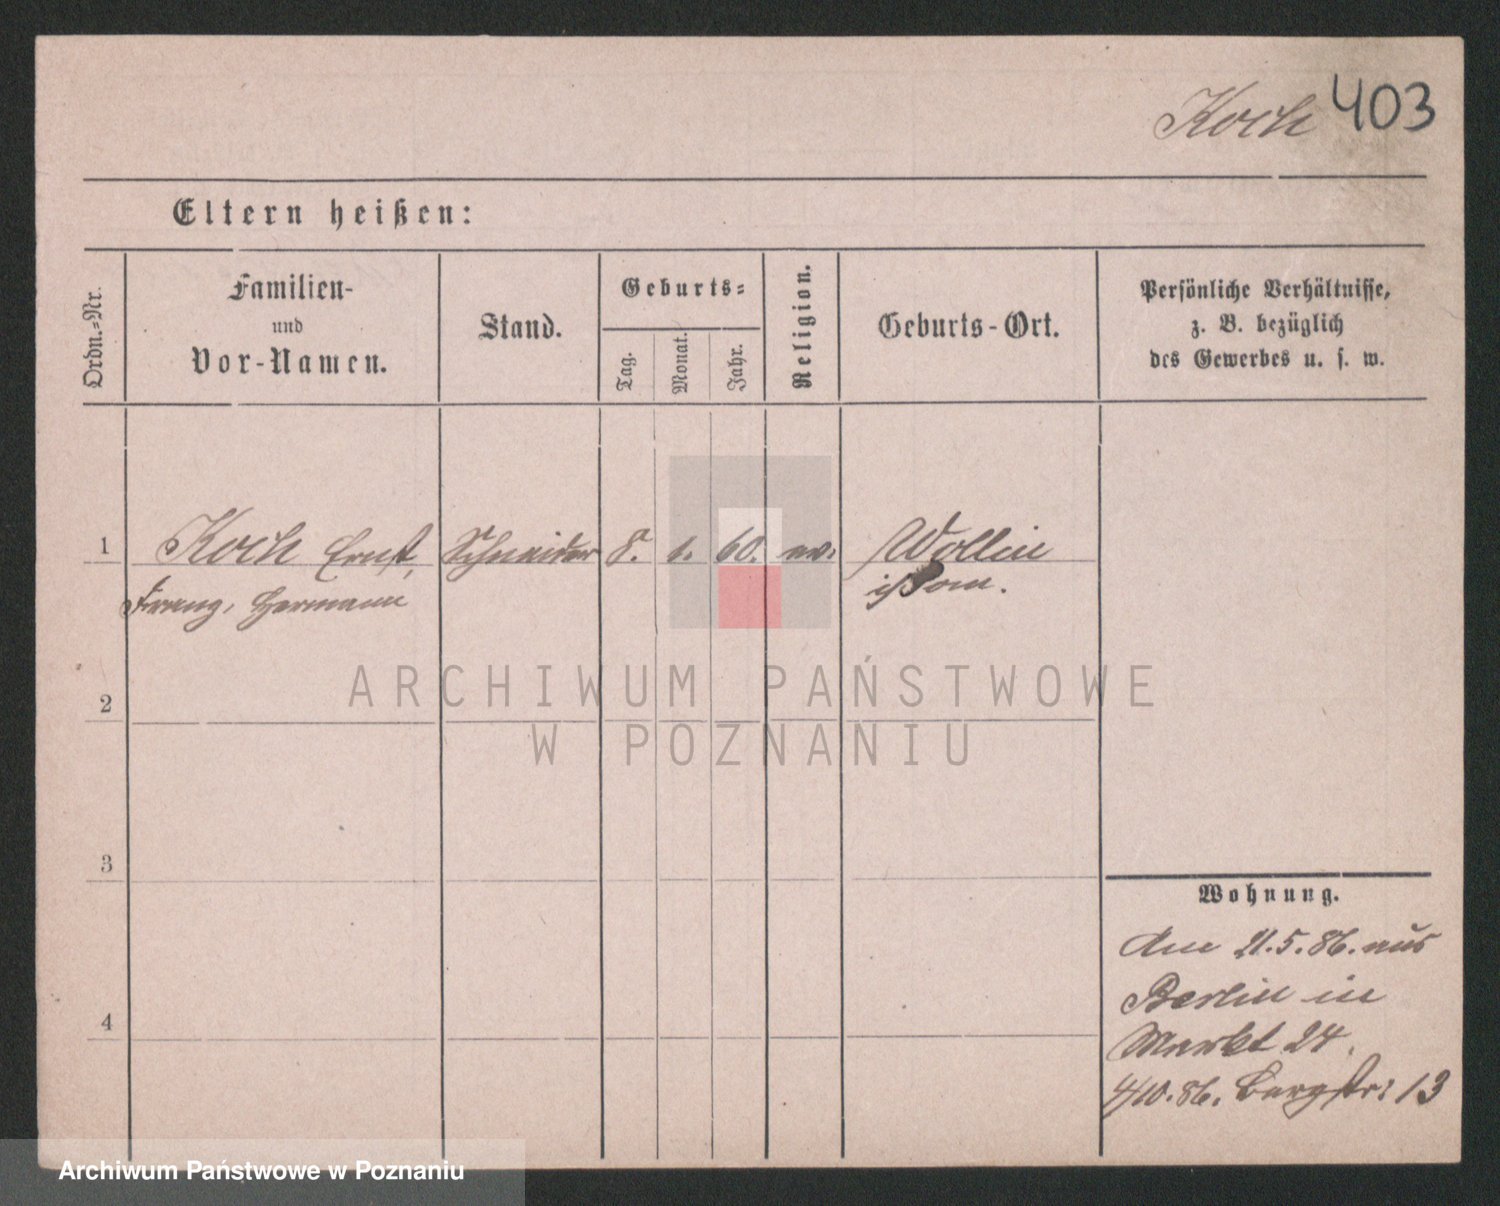 Koch 403
Eltern heißen:
Ordn.-Nr.
Familien-
und
Vor-Namen.
Stand.
Geburts-
Tag.
Monat.
Jahr.
Religion.
Geburts-Ort.
Persönliche Verhältnisse,
z. B. bezüglich
des Gewerbes u. s. w.
1 Koch Ernst, Schneider 8. 1. 60. ev. Wollin
Franz, Hermann i/Pom.
2
3
4
Wohnung.
Am 21.5.86. aus
Berlin in
Markt 24.
4/10.86. Bergstr: 13
ARCHIWUM PAŃSTWOWE
W POZNANIU
Archiwum Państwowe w Poznaniu